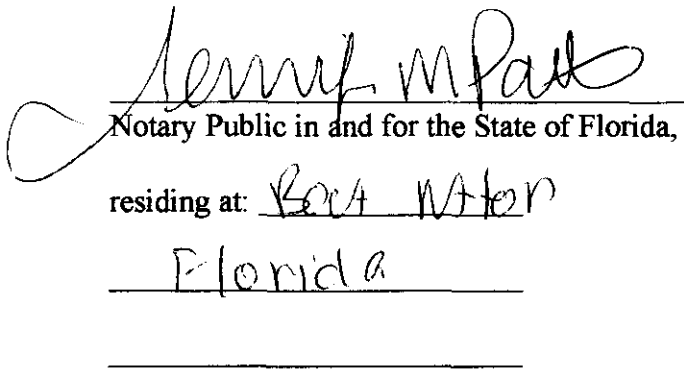 Jennif M Patt
Notary Public in and for the State of Florida,
residing at: Boca Raton
Florida